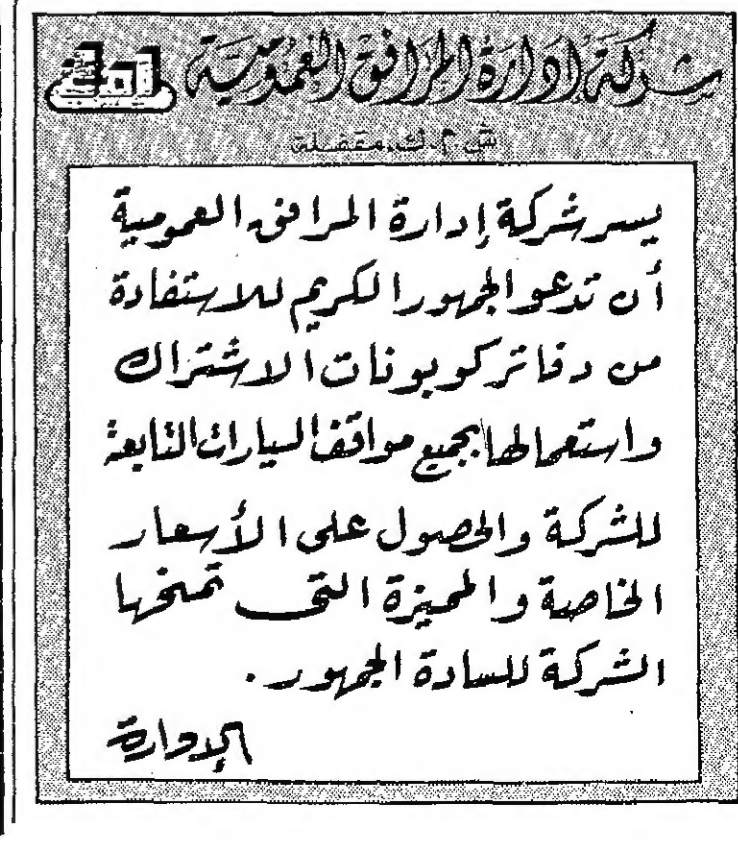 شركة إدارة المرافق العمومية
ش.م.ك. مقفلة
يسر شركة إدارة المرافق العمومية
أن تدعو الجمهور الكريم للاستفادة
من دفاتر كوبونات الاشتراك
واستعمالها بجميع مواقف السيارات التابعة
للشركة والحصول على الأسعار
الخاصة والمميزة التى تمنحها
الشركة للسادة الجمهور.
الإدارة